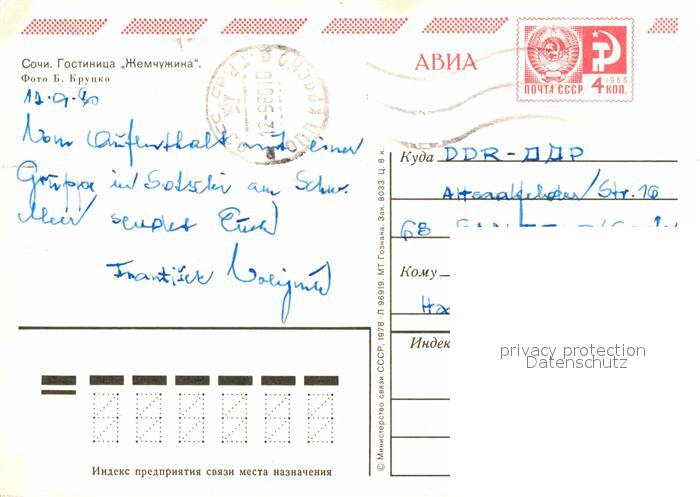 АВИА
1966
ПОЧТА СССР 4 КОП.
Сочи. Гостиница „Жемчужина“.
Фото Б. Круцко
12.9.80
Vom Aufenthalt mit einer
Gruppe in Sotschi am Schw.
Meer sendet Euch
František
Куда DDR-ДДР
Str. 16
68
Кому
Индек
privacy protection
Datenschutz
© Министерство связи СССР, 1978 · Л 96919. МТ Гознака. Зак. 8033. Ц. 8 к.
Индекс предприятия связи места назначения